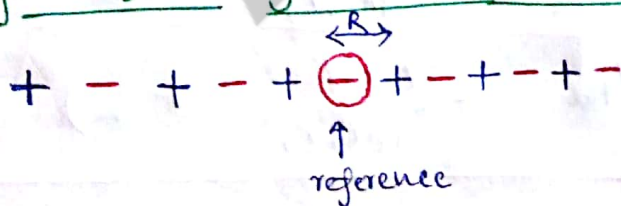 R
+ - + - + - + - + - + -
reference